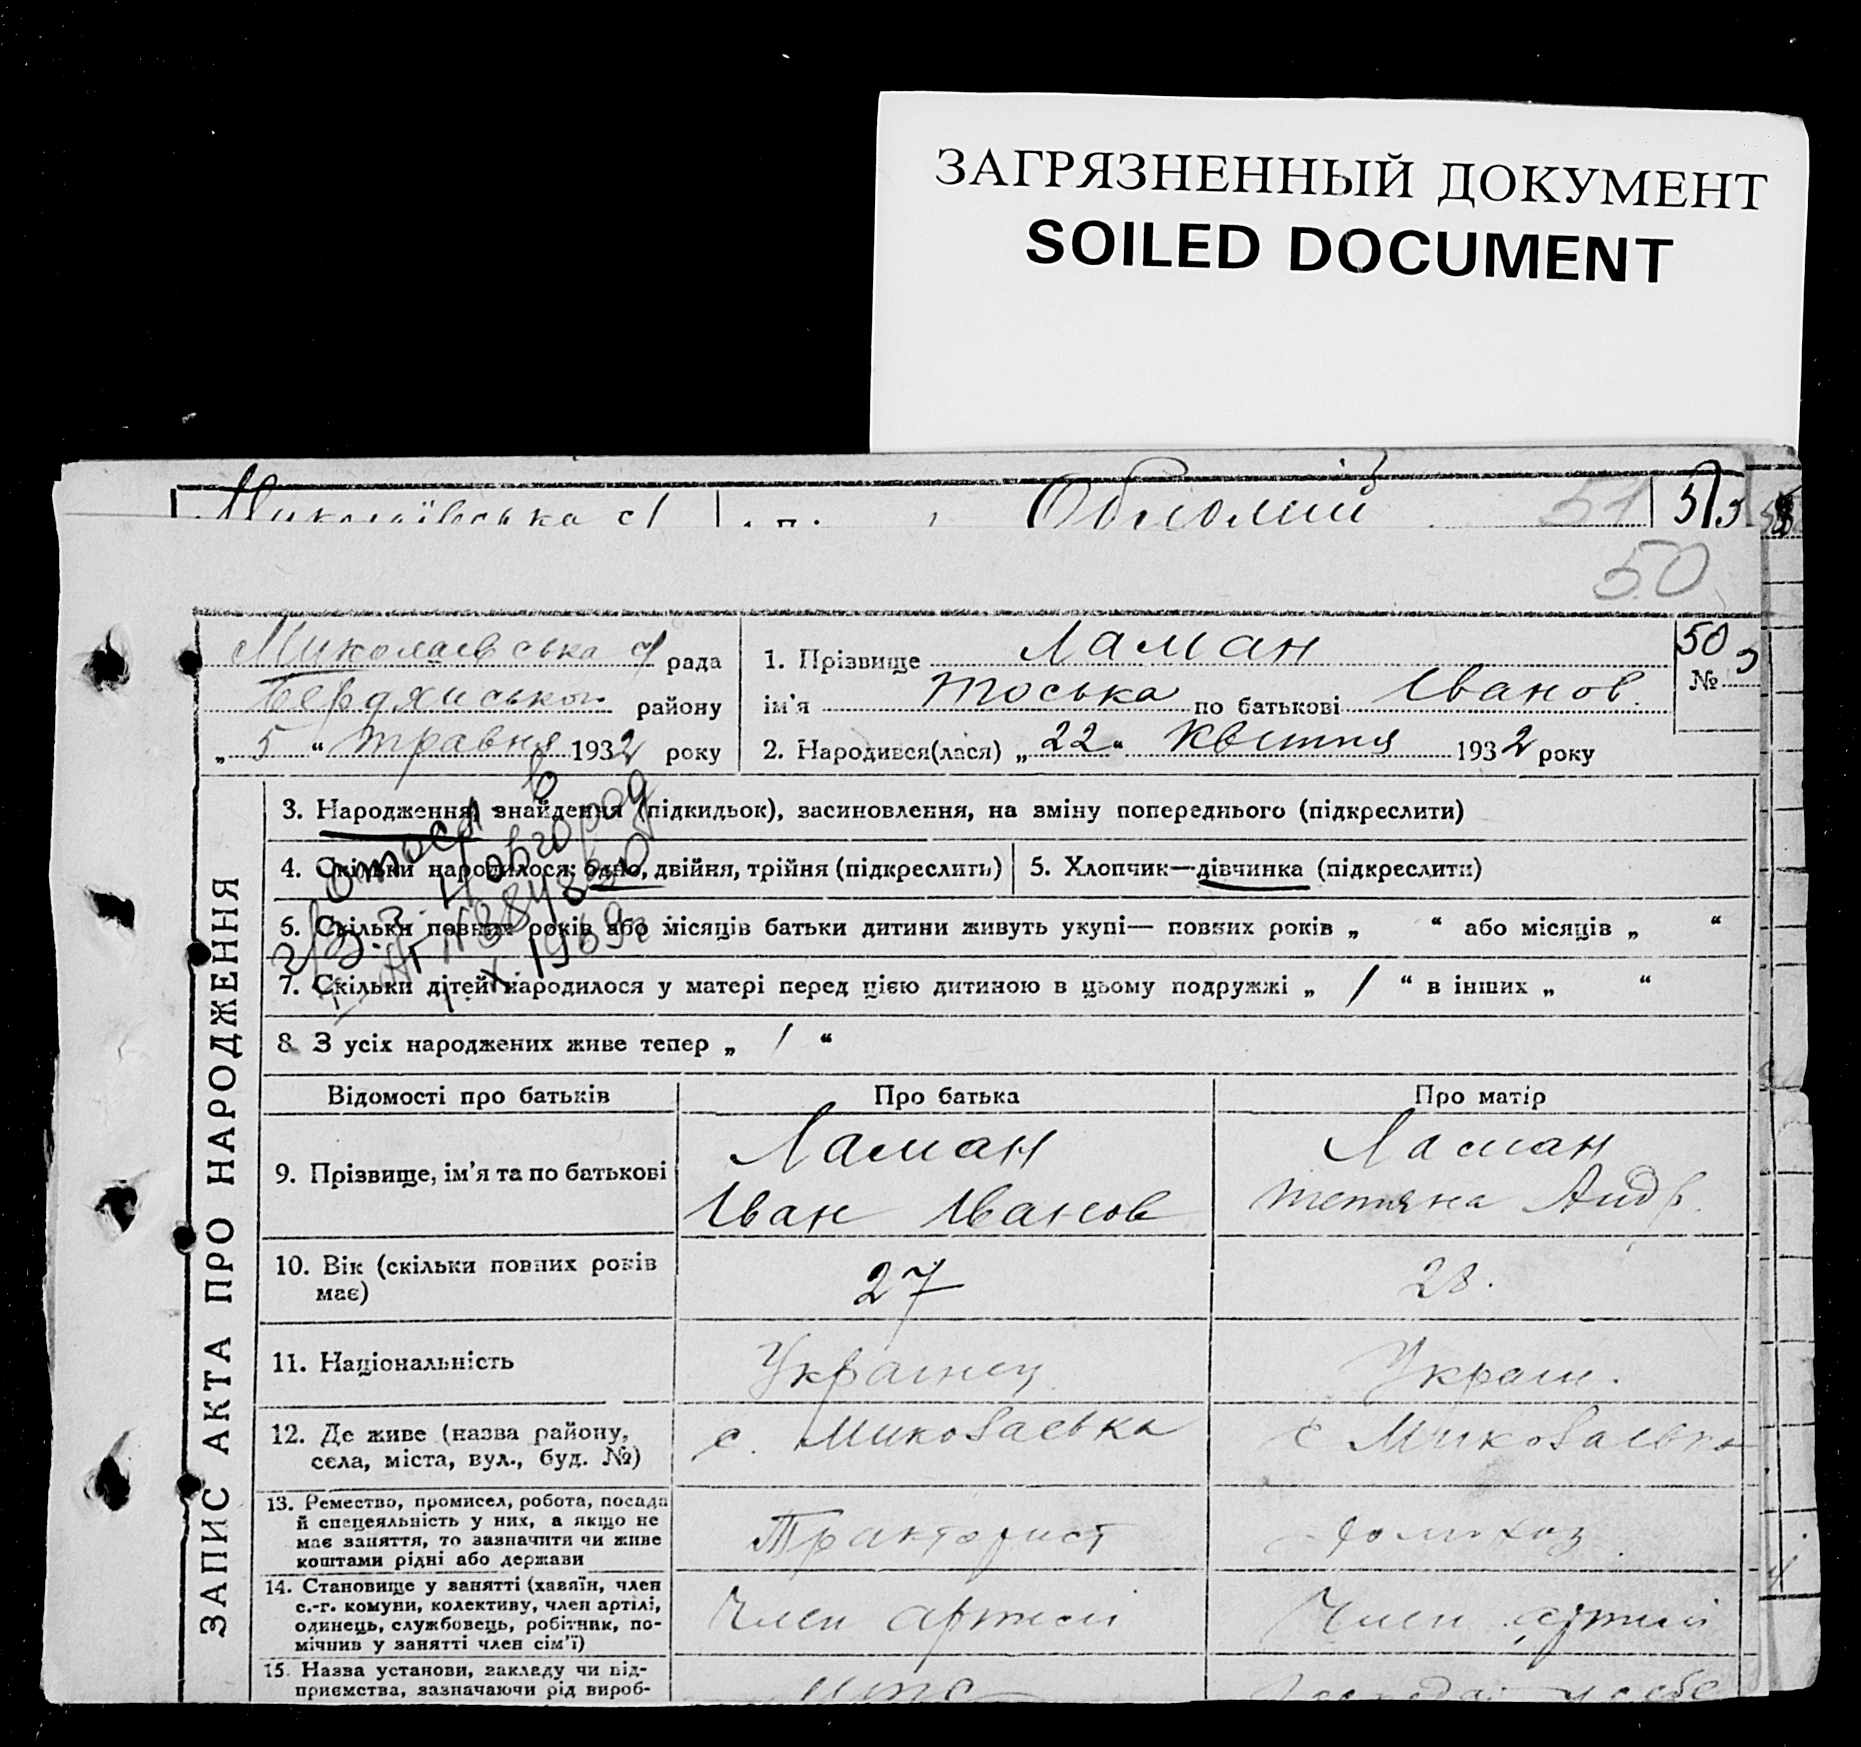 ЗАГРЯЗНЕННЫЙ ДОКУМЕНТ
SOILED DOCUMENT
51
50
Миколаївська с/ рада
Бердянського району
„ 5 “ травня 1932 року
1. Прізвище Ламан
ім'я Тоська по батькові Іванов.
2. Народився(лася) „ 22 “ Квітня 1932 року
50
№ 5
ЗАПИС АКТА ПРО НАРОДЖЕННЯ
3. Народження, знайдення (підкидьок), засиновлення, на зміну попереднього (підкреслити)
4. Скільки народилося: одно, двійня, трійня (підкреслить)
5. Хлопчик—дівчинка (підкреслити)
6. Скільки повних років або місяців батьки дитини живуть укупі— повних років „ “ або місяців „ “
7. Скільки дітей народилося у матері перед цією дитиною в цьому подружжі „ / “ в інших „ “
8. З усіх народжених живе тепер „ / “
1969г
Відомості про батьків
Про батька
Про матір
9. Прізвище, ім'я та по батькові
Ламан
Іван Іванов
Ламан
Тетяна Андр.
10. Вік (скільки повних років
має)
27
28.
11. Національність
Українец
Україн.
12. Де живе (назва району,
села, міста, вул., буд. №)
с. Миколаевка
с Миколаевка
13. Ремество, промисел, робота, посада
й спецеяльність у них, а якщо не
має заняття, то зазначити чи живе
коштами рідні або держави
Тракторист
домохоз
14. Становище у занятті (хазяїн, член
с.-г. комуни, колективу, член артілі,
одинець, службовець, робітник, по-
мічник у занятті член сім'ї)
Член артілі
Член артілі
15. Назва установи, закладу чи під-
приємства, зазначаючи рід вироб-
МТС